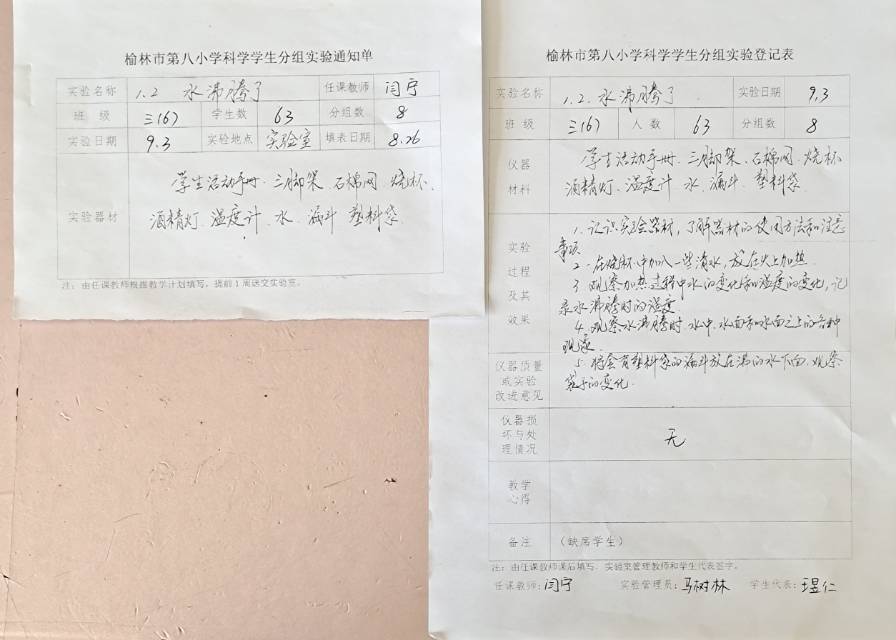 榆林市第八小学科学学生分组实验通知单
实验名称 1.2 水沸腾了 任课教师 闫宁
班 级 三(6) 学生数 63 分组数 8
实验日期 9.3 实验地点 实验室 填表日期 8.26
学生活动手册、三脚架、石棉网、烧杯、
实验器材 酒精灯、温度计、水、漏斗、塑料袋
注：由任课教师根据教学计划填写，提前1周送交实验室。
榆林市第八小学科学学生分组实验登记表
实验名称 1.2.水沸腾了 实验日期 9.3
班 级 三(6) 人 数 63 分组数 8
仪器
材料
学生活动手册、三脚架、石棉网、烧杯
酒精灯、温度计、水、漏斗、塑料袋
实验
过程
及其
效果
1.认识实验器材，了解器材的使用方法和注意
事项
2.在烧杯中加入一些清水，放在火上加热
3.观察加热过程中水的变化和温度的变化，记
录水沸腾时的温度
4.观察水沸腾时水中、水面和水面之上的各种
现象
5.将套有塑料袋的漏斗放在沸的水下面，观察
袋子的变化.
仪器质量
或实验
改进意见
仪器损
坏与处
理情况
无
教学
心得
备注 （缺席学生）
注：由任课教师课后填写，实验室管理教师和学生代表签字。
任课教师：闫宁 实验管理员：马树林 学生代表：